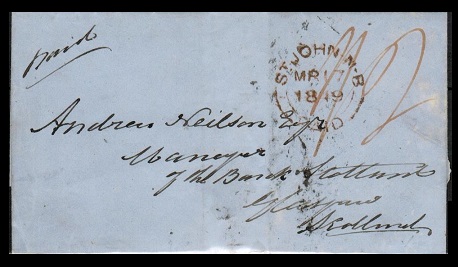 Paid
ST. JOHN N.B
MR 17
1849
PAID
1/2
Andrew Neilson Esqr
Manager
of the Bank Scotland
Glasgow
Scotland